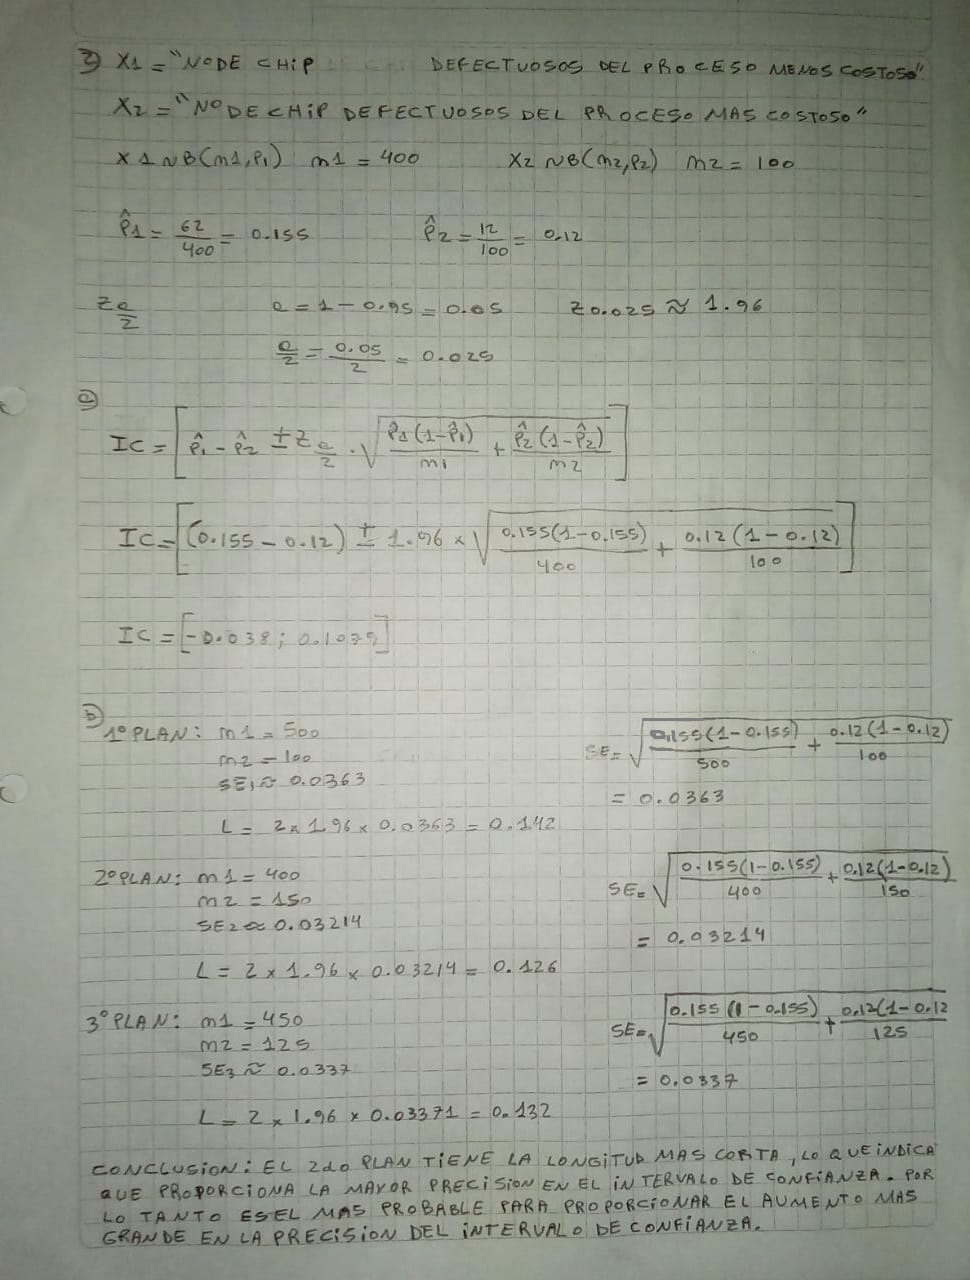 3) X1 = "Nº DE CHIP DEFECTUOSOS DEL PROCESO MENOS COSTOSO"
X2 = "Nº DE CHIP DEFECTUOSOS DEL PROCESO MAS COSTOSO"
X1 ~ B(m1, P1) m1 = 400 X2 ~ B(m2, P2) m2 = 100
P̂1 = 62/400 = 0.155 P̂2 = 12/100 = 0.12
Z α/2 α = 1 - 0.95 = 0.05 Z0.025 ≈ 1.96
α/2 = 0.05/2 = 0.025
a)
IC = [P̂1 - P̂2 ± Z α/2 . √(P̂1(1-P̂1)/m1 + P̂2(1-P̂2)/m2)]
IC = [(0.155 - 0.12) ± 1.96 × √(0.155(1-0.155)/400 + 0.12(1-0.12)/100)]
IC = [-0.038; 0.1079]
b)
1º PLAN: m1 = 500
m2 = 100
SE1 ≈ 0.0363
SE = √(0.155(1-0.155)/500 + 0.12(1-0.12)/100)
= 0.0363
L = 2 × 1.96 × 0.0363 = 0.142
2º PLAN: m1 = 400
m2 = 150
SE2 ≈ 0.03214
SE = √(0.155(1-0.155)/400 + 0.12(1-0.12)/150)
= 0.03214
L = 2 × 1.96 × 0.03214 = 0.126
3º PLAN: m1 = 450
m2 = 125
SE3 ≈ 0.0337
SE = √(0.155(1-0.155)/450 + 0.12(1-0.12/125)
= 0.0337
L = 2 × 1.96 × 0.03371 = 0.132
CONCLUSION: EL 2do PLAN TIENE LA LONGITUD MAS CORTA, LO QUE INDICA
QUE PROPORCIONA LA MAYOR PRECISION EN EL INTERVALO DE CONFIANZA. POR
LO TANTO ES EL MAS PROBABLE PARA PROPORCIONAR EL AUMENTO MAS
GRANDE EN LA PRECISION DEL INTERVALO DE CONFIANZA.